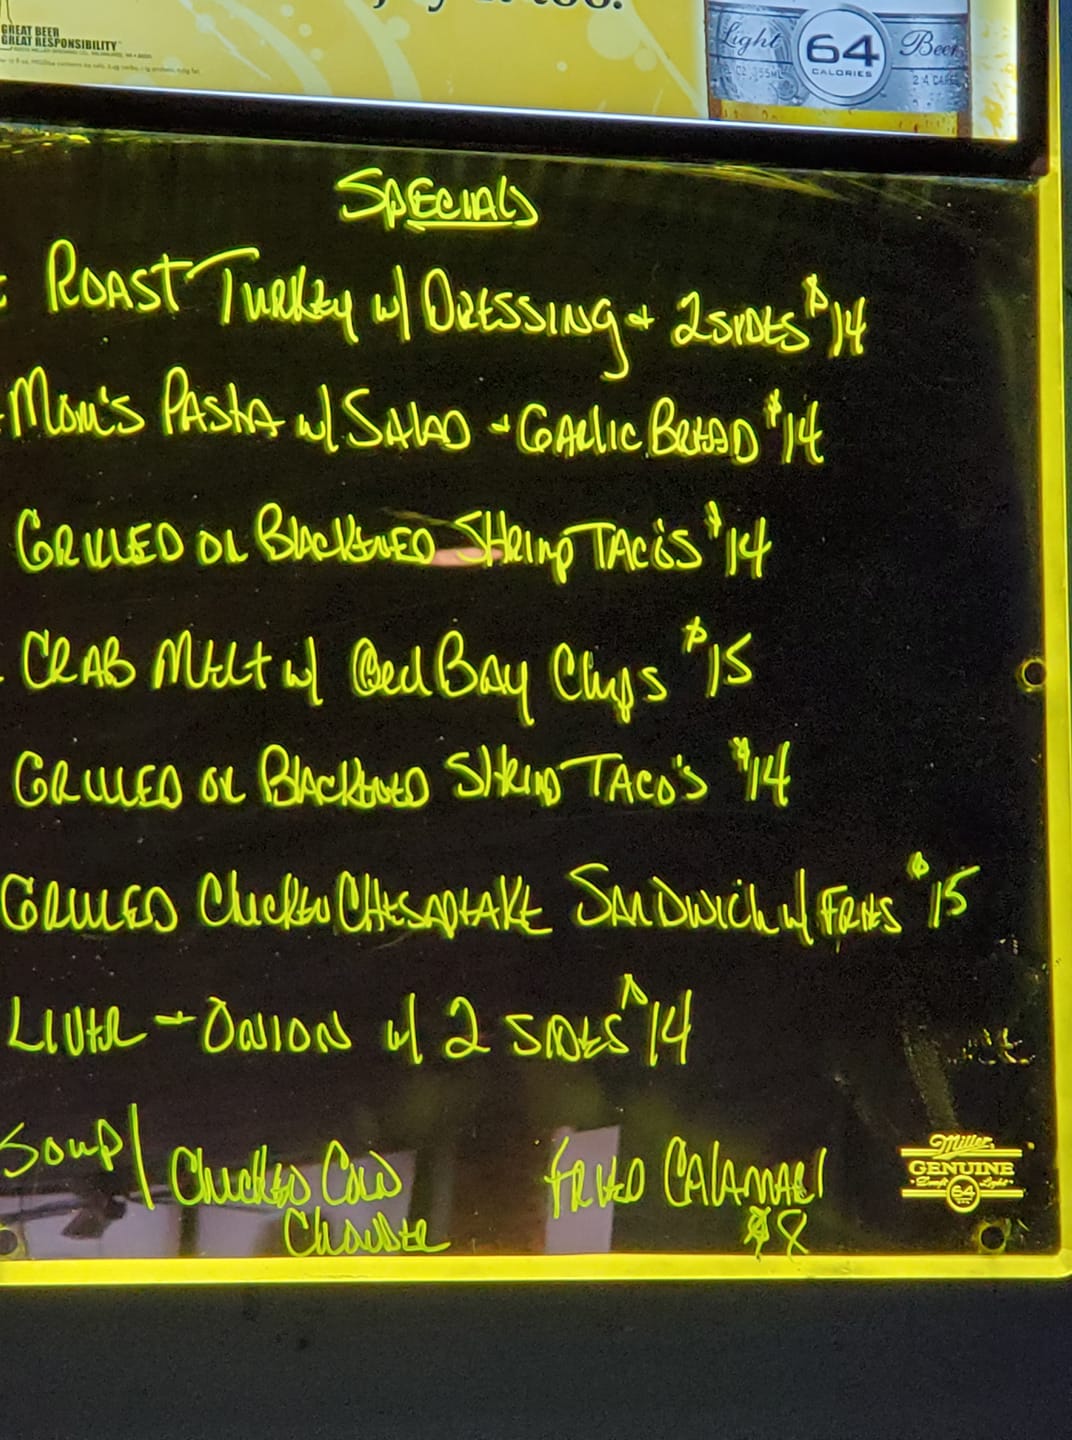 GREAT BEER
GREAT RESPONSIBILITY
too.
Light 64 Beer
CALORIES
SPECIALS
ROAST TURKEY w/ DRESSING + 2 SIDES $14
MOM'S PASTA w/ SALAD + GARLIC BREAD $14
GRILLED OR BLACKENED SHRIMP TACO'S $14
CRAB MELT w/ Old BAY Chips $15
GRILLED OR BLACKENED SHRIMP TACO'S $14
GRILLED CHICKEN CHESAPEAKE SANDWICH w/ FRIES $15
LIVER + ONION w/ 2 SIDES $14
SOUP/ CHICKEN CORN CHOWDER
FRIED CALAMARI
$8
Miller
GENUINE
Draft Light
64